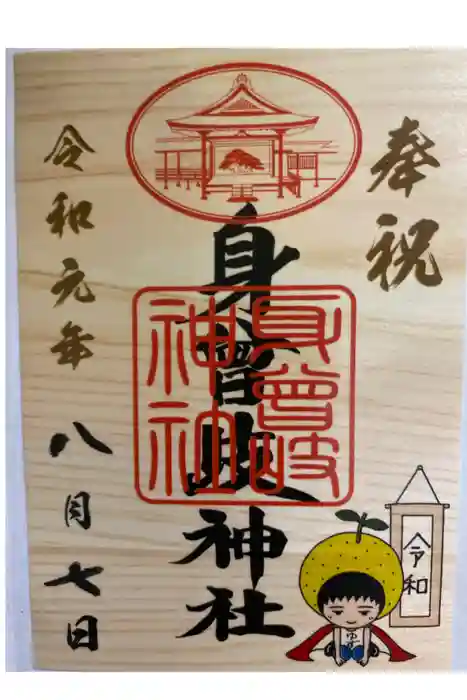 奉祝
身曾岐神社
身曾岐神社
令和元年
八月七日
令和
ゆず